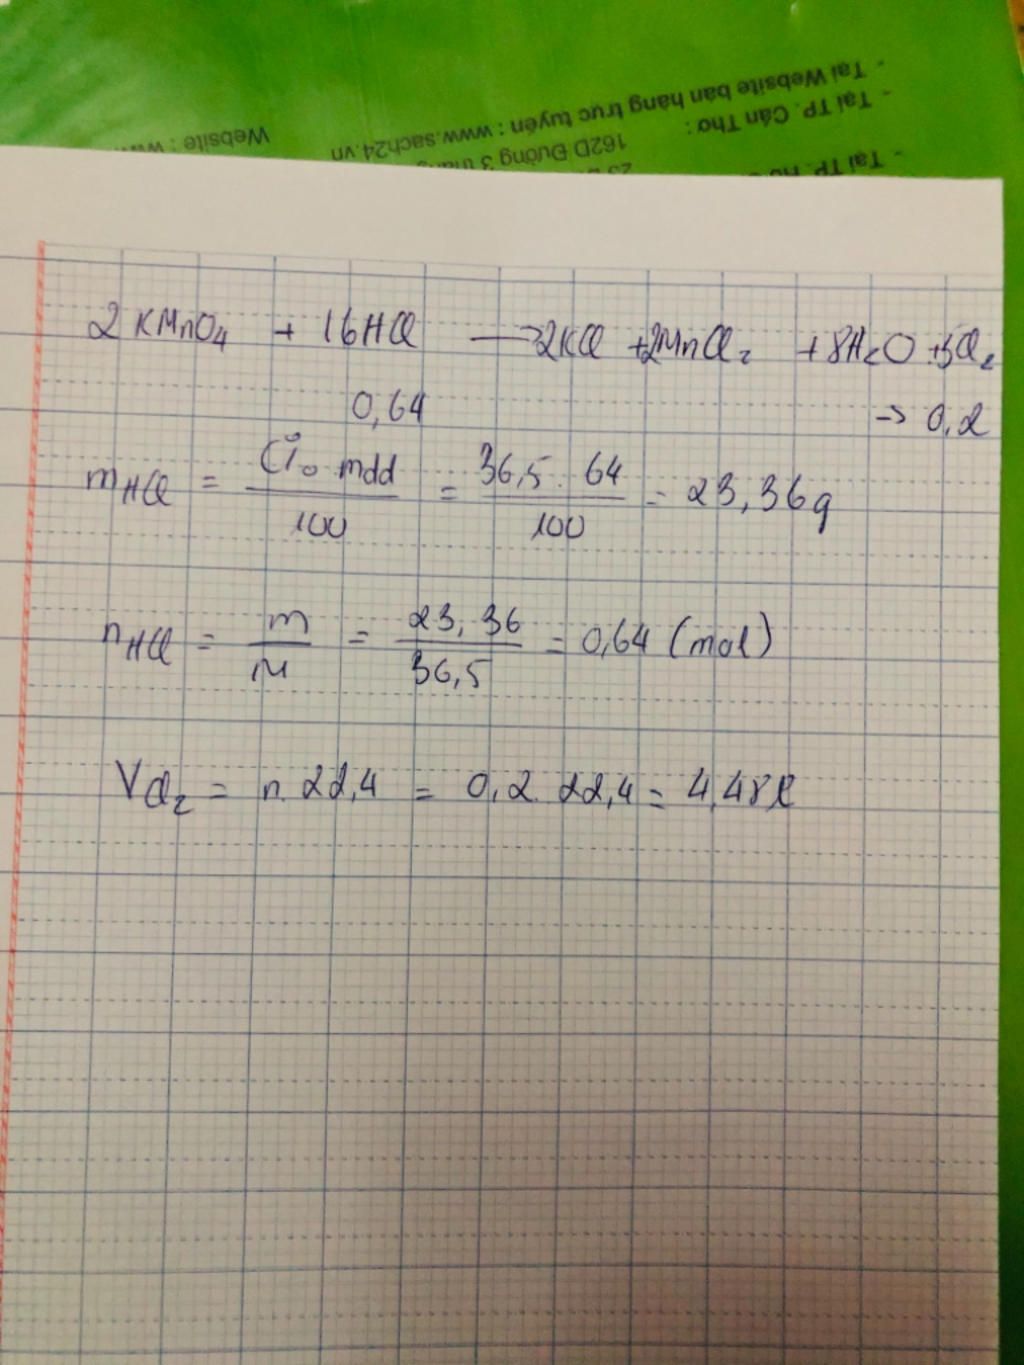 - Tại Website bán hàng trực tuyến : www.sach24.vn
Website : www
- Tại TP. Cần Thơ :
162D Đường 3 thán
- Tại TP. H
2KMnO4 + 16HCl → 2KCl + 2MnCl2 + 8H2O + 5Cl2
0,64 → 0,2
mHCl = C%. mdd / 100 = 36,5 . 64 / 100 = 23,36g
nHCl = m / M = 23,36 / 36,5 = 0,64 (mol)
VCl2 = n. 22,4 = 0,2. 22,4 = 4,48l